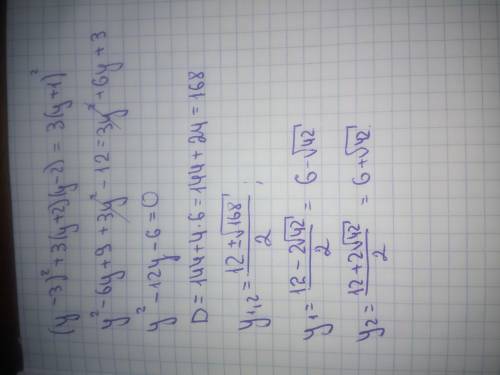 (y-3)² + 3(y+2)(y-2) = 3(y+1)²
y² - 6y + 9 + 3y² - 12 = 3y² + 6y + 3
y² - 12y - 6 = 0
D = 144 + 4·6 = 144 + 24 = 168
y₁,₂ = (12 ± √168)/2 ;
y₁ = (12 - 2√42)/2 = 6 - √42
y₂ = (12 + 2√42)/2 = 6 + √42